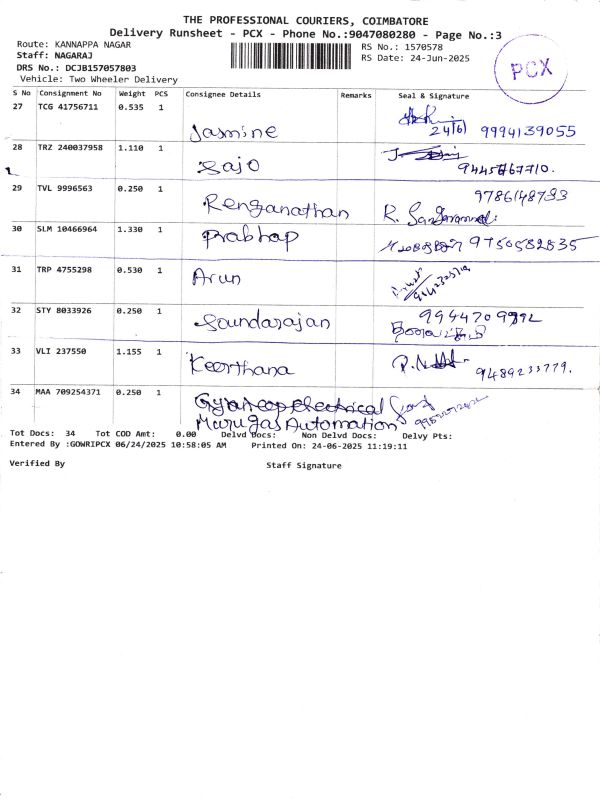 THE PROFESSIONAL COURIERS, COIMBATORE
Delivery Runsheet - PCX - Phone No.:9047080280 - Page No.:3
Route: KANNAPPA NAGAR
Staff: NAGARAJ
DRS No.: DCJB157057803
Vehicle: Two Wheeler Delivery
RS No.: 1570578
RS Date: 24-Jun-2025
PCX
S No Consignment No Weight PCS Consignee Details Remarks Seal & Signature
27 TCG 41756711 0.535 1 Jasmine 24/6 9994139055
28 TRZ 240037958 1.110 1 Sajo
29 TVL 9996563 0.250 1 Renganathan R.
30 SLM 10466964 1.330 1 Prabhap 9750582835
31 TRP 4755298 0.530 1 Arun
32 STY 8033926 0.250 1 Soundarajan
33 VLI 237550 1.155 1 Keerthana 9489233779.
34 MAA 709254371 0.250 1
Murugas Automation
Tot Docs: 34 Tot COD Amt: 0.00 Delvd Docs: Non Delvd Docs: Delvy Pts:
Entered By :GOWRIPCX 06/24/2025 10:58:05 AM Printed On: 24-06-2025 11:19:11
Verified By Staff Signature